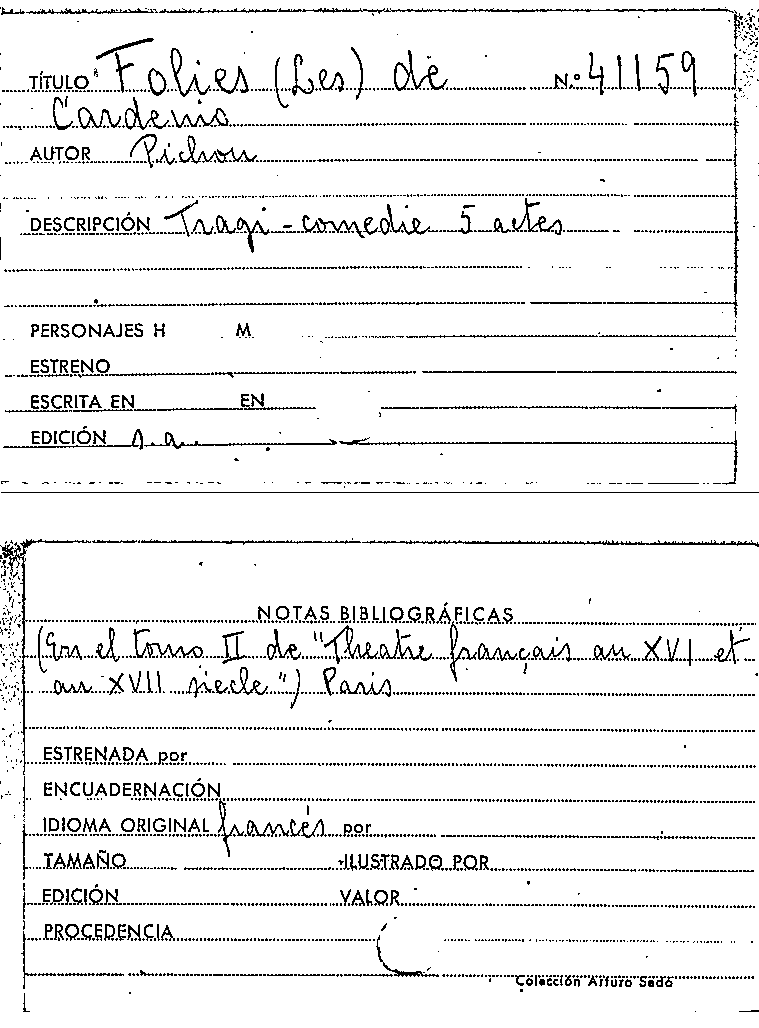 TÍTULO Folies (Les) de N.º 41159
Cardenio
AUTOR Pichou
DESCRIPCIÓN Tragi-comedie 5 actes
PERSONAJES H M
ESTRENO
ESCRITA EN EN
EDICIÓN s.a.
NOTAS BIBLIOGRÁFICAS
(En el tomo II de "Theatre français au XVI et
au XVII siecle") Paris
ESTRENADA por
ENCUADERNACIÓN
IDIOMA ORIGINAL francés por
TAMAÑO ILUSTRADO POR
EDICIÓN VALOR
PROCEDENCIA
Colección Arturo Sedó